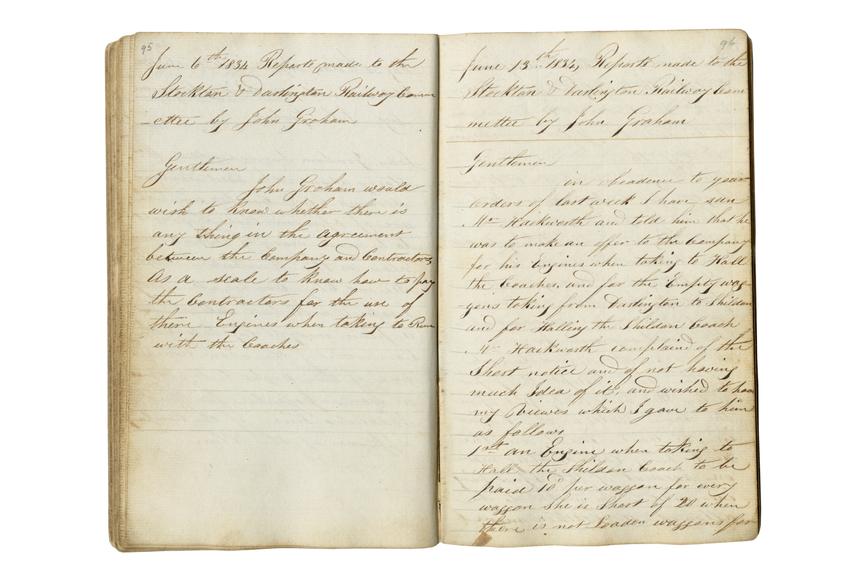 95
June 6th 1834 Reports made to the
Stockton & Darlington Railway Comm
-ettee by John Graham
Gentlemen
John Graham would
wish to know whether there is
any thing in the agreement
between the Company and Contractors
As a scale to know how to pay
the Contractors for the use of
there Engines when taking to Run
with the Coaches
96
June 13th 1834 Reports made to the
Stockton & Darlington Railway Com
mettee by John Graham
Gentlemen
in obeadence to your
orders of last week I have seen
Mr Hackworth and told him that he
was to make an offer to the Company
for his Engines when taking to Hall
the Coaches, and for the Empty wag
-gons taking from Darlington to Shildon
and for Halling the Shildon Coach
Mr Hackworth complaind of the
Short notice and of not having
much Idea of it, and wished to have
my Viewes which I gave to him
as follows
1st an Engine when taking to
Hall the Shildon Coach to be
paid 10d per waggon for every
waggon She is Short of 20 when
there is not Loaden waggons for